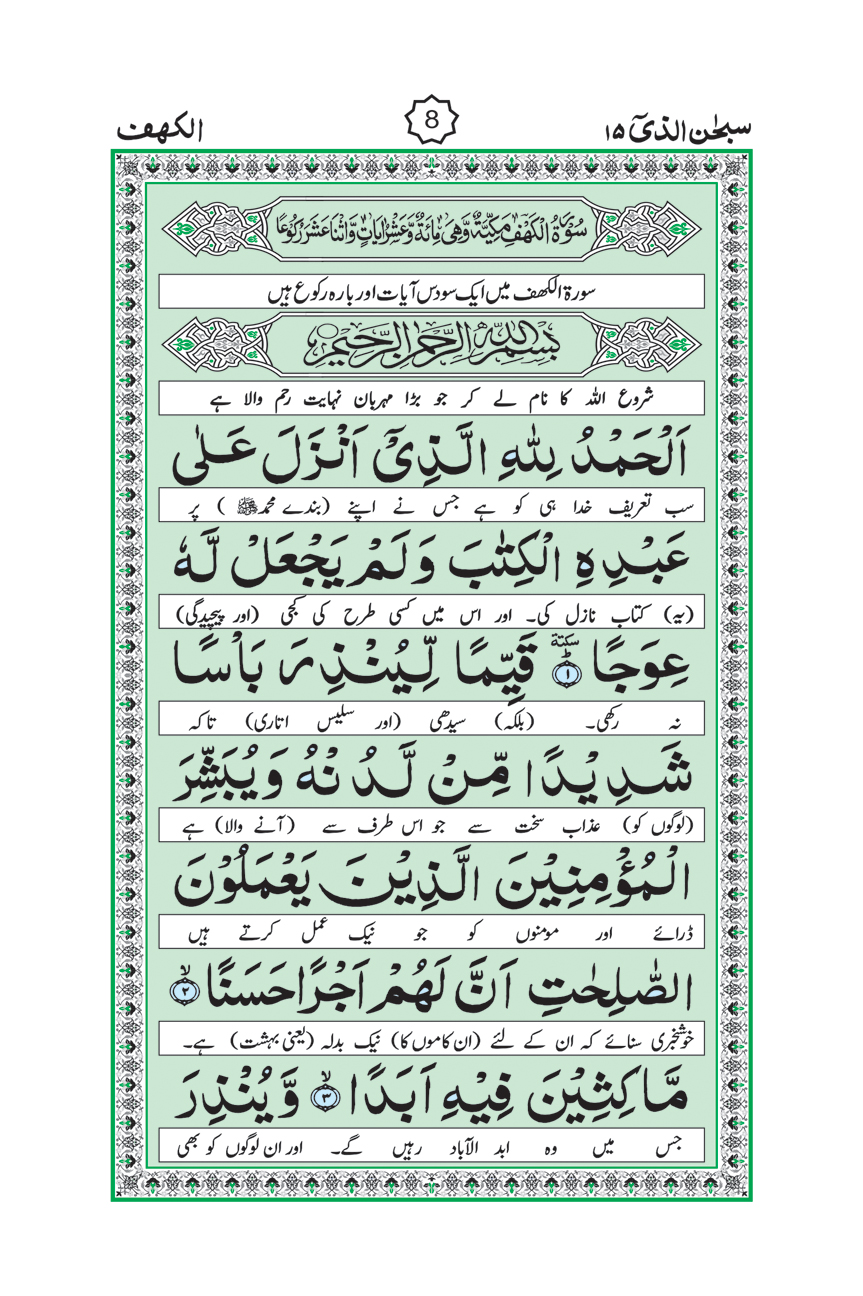 سبحٰن الذیٓ ۱۵
8
الکھف
سُوۡرَۃُ الۡکَهۡفِ مَکِّیَّۃٌ وَّهِیَ مِائَۃٌ وَّعَشۡرُ اٰیَاتٍ وَّاثۡنَا عَشَرَ رُکُوۡعًا
سورۃ الکھف میں ایک سو دس آیات اور بارہ رکوع ہیں
بِسۡمِ اللّٰهِ الرَّحۡمٰنِ الرَّحِیۡمِ
شروع اللہ کا نام لے کر جو بڑا مہربان نہایت رحم والا ہے
اَلۡحَمۡدُ لِلّٰهِ الَّذِیۡۤ اَنۡزَلَ عَلٰی
سب تعریف خدا ہی کو ہے جس نے اپنے (بندے محمدﷺ) پر
عَبۡدِهِ الۡکِتٰبَ وَلَمۡ یَجۡعَلۡ لَّهٗ
(یہ) کتاب نازل کی۔ اور اس میں کسی طرح کی کجی (اور پیچیدگی)
عِوَجًا ﴿۱﴾ سکتة قَیِّمًا لِّیُنۡذِرَ بَاۡسًا
نہ رکھی۔ (بلکہ) سیدھی (اور سلیس اتاری) تاکہ
شَدِیۡدًا مِّنۡ لَّدُنۡهُ وَیُبَشِّرَ
(لوگوں کو) عذاب سخت سے جو اس طرف سے (آنے والا) ہے
الۡمُؤۡمِنِیۡنَ الَّذِیۡنَ یَعۡمَلُوۡنَ
ڈرائے اور مومنوں کو جو نیک عمل کرتے ہیں
الصّٰلِحٰتِ اَنَّ لَهُمۡ اَجۡرًا حَسَنًا ﴿۲﴾ۙ
خوشخبری سنائے کہ ان کے لئے (ان کاموں کا) نیک بدلہ (یعنی بہشت) ہے۔
مَّاکِثِیۡنَ فِیۡهِ اَبَدًا ﴿۳﴾ۙ وَّیُنۡذِرَ
جس میں وہ ابد الآباد رہیں گے۔ اور ان لوگوں کو بھی